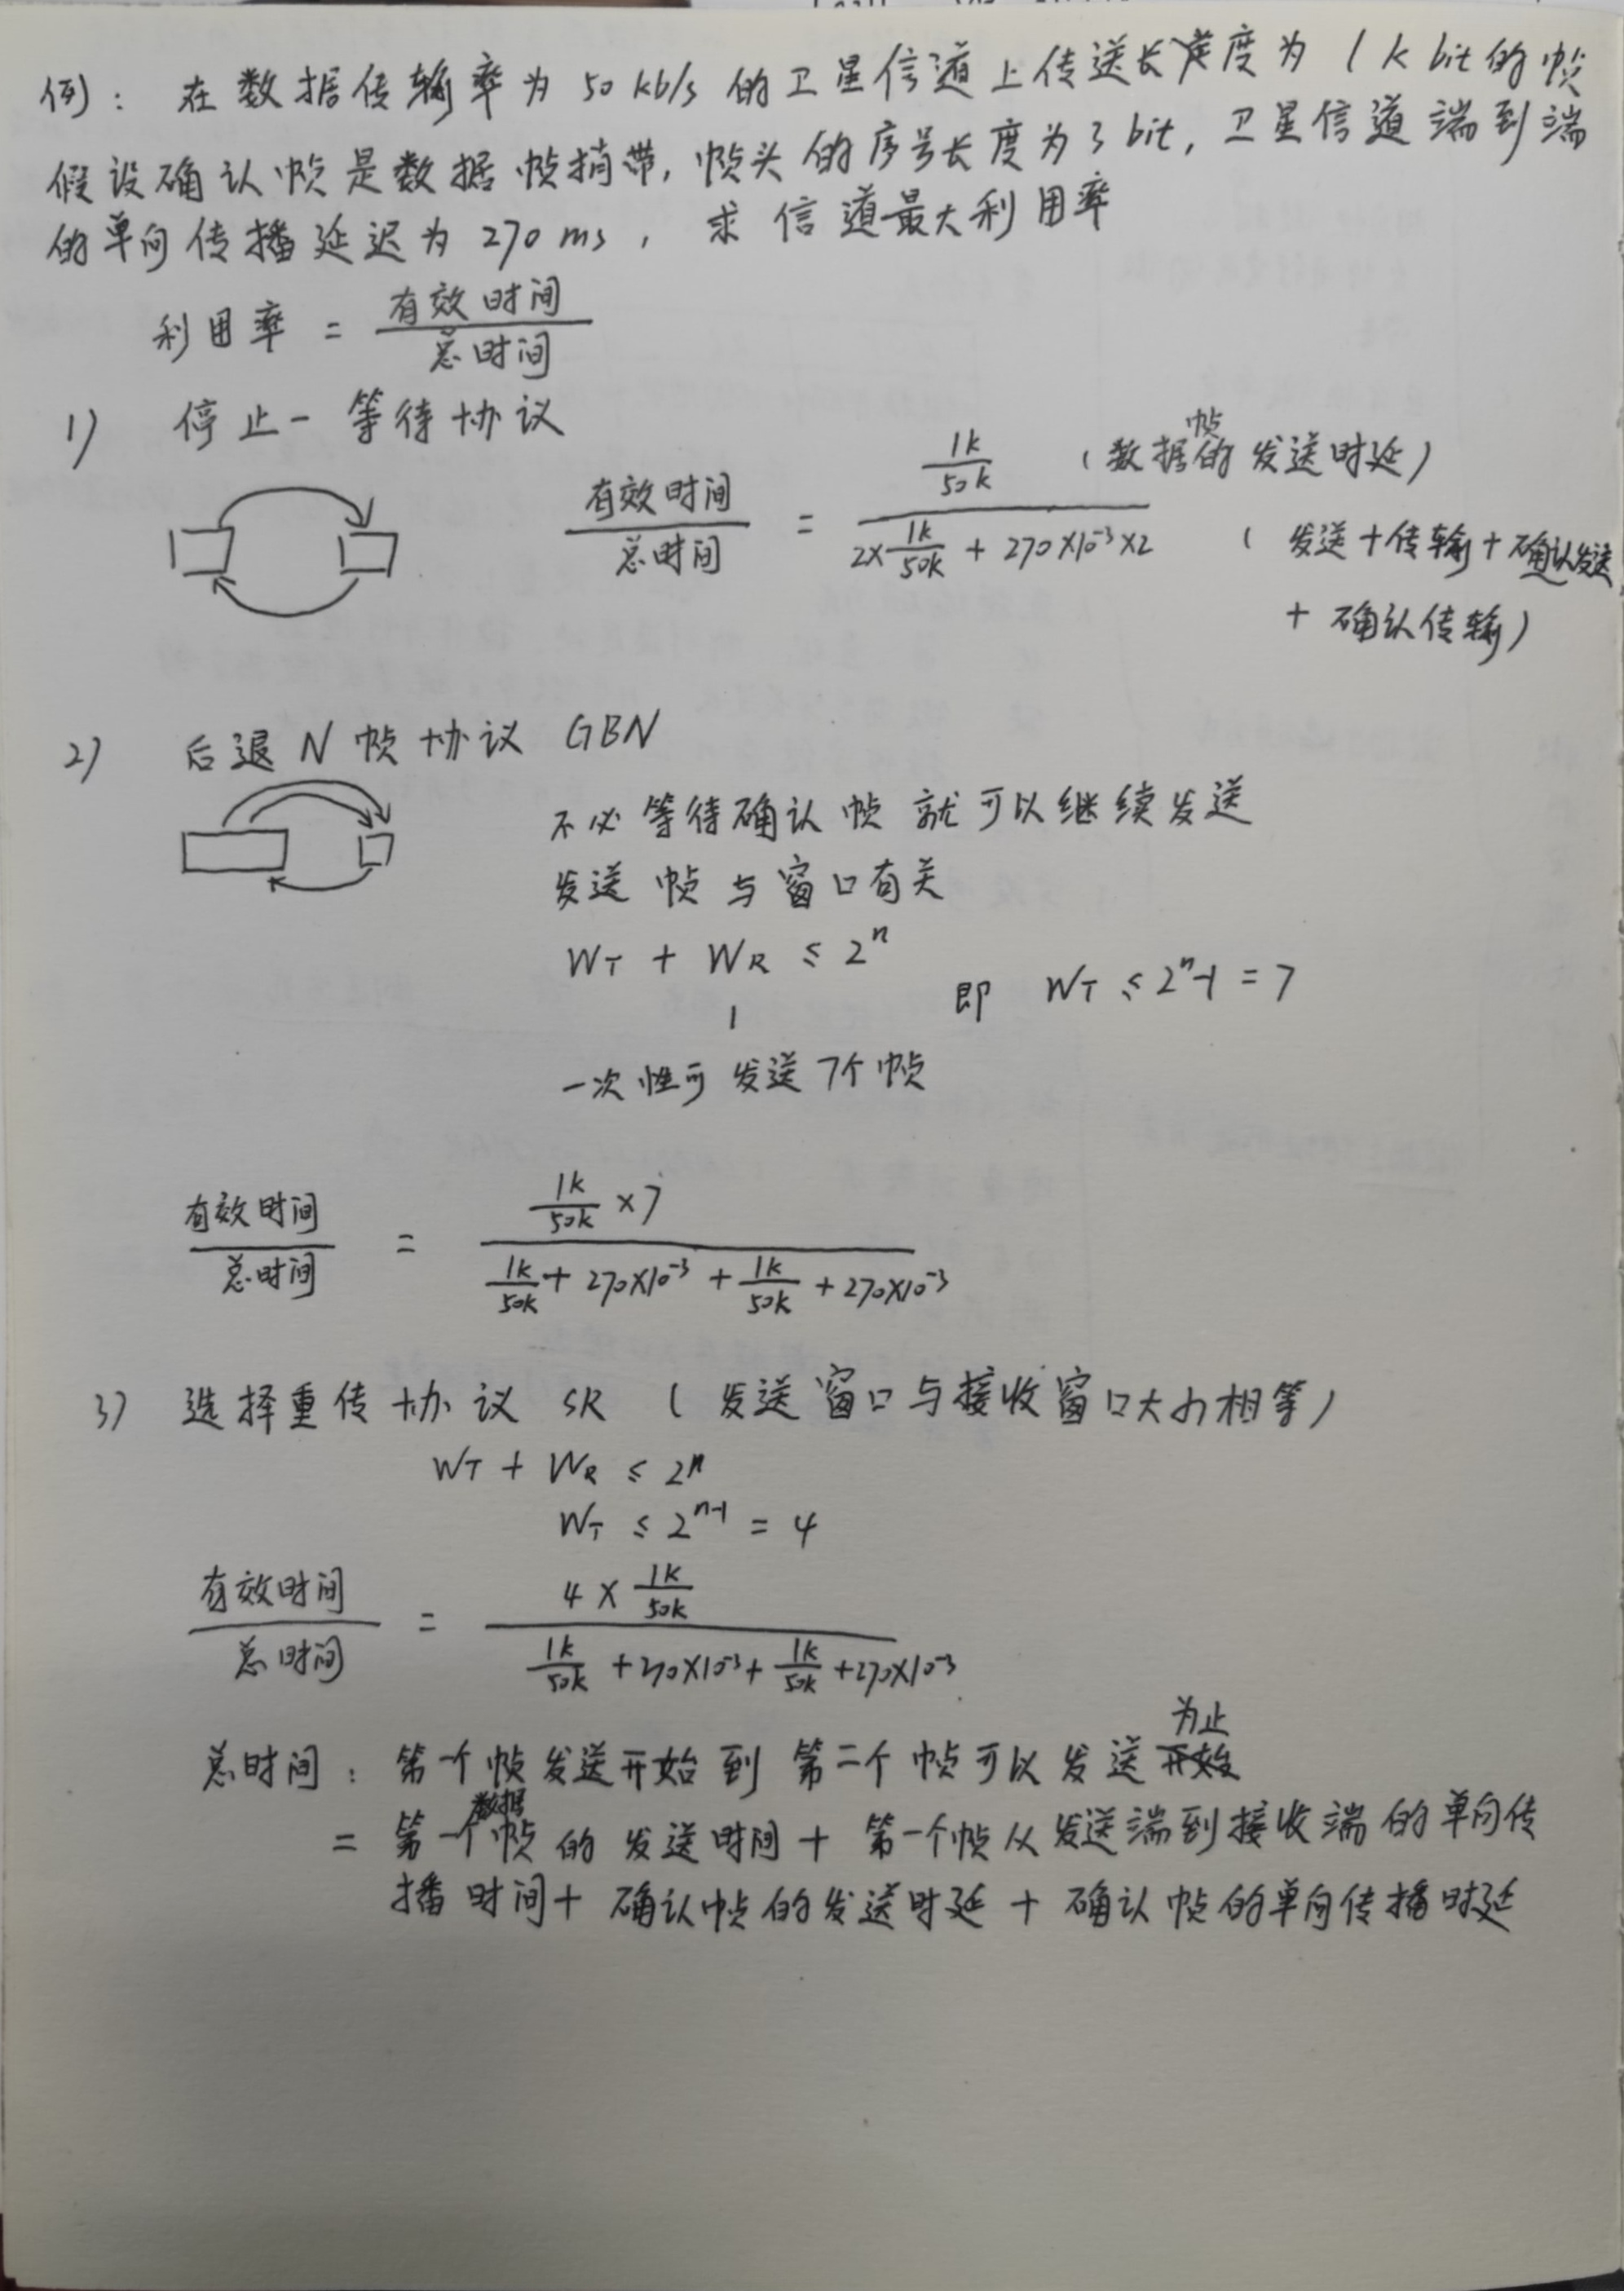 例：在数据传输率为 50 kb/s 的卫星信道上传送长度为 1 k bit 的帧
假设确认帧是数据帧捎带，帧头的序号长度为 3 bit，卫星信道端到端
的单向传播延迟为 270 ms，求信道最大利用率
利用率 = 有效时间 / 总时间
1) 停止-等待协议
有效时间 / 总时间 = (1k/50k) / (2×1k/50k + 270×10⁻³×2)
（数据帧的发送时延）
（发送+传输+确认发送
+ 确认传输）
2) 后退 N 帧协议 GBN
不必等待确认帧就可以继续发送
发送帧与窗口有关
W_T + W_R ≤ 2ⁿ
1
即 W_T ≤ 2ⁿ-1 = 7
一次性可发送7个帧
有效时间 / 总时间 = (1k/50k × 7) / (1k/50k + 270×10⁻³ + 1k/50k + 270×10⁻³)
3) 选择重传协议 SR （发送窗口与接收窗口大小相等）
W_T + W_R ≤ 2ⁿ
W_T ≤ 2ⁿ⁻¹ = 4
有效时间 / 总时间 = (4 × 1k/50k) / (1k/50k + 270×10⁻³ + 1k/50k + 270×10⁻³)
总时间：第一个帧发送开始到第二个帧可以发送为止
= 第一个数据帧的发送时间 + 第一个帧从发送端到接收端的单向传
播时间 + 确认帧的发送时延 + 确认帧的单向传播时延